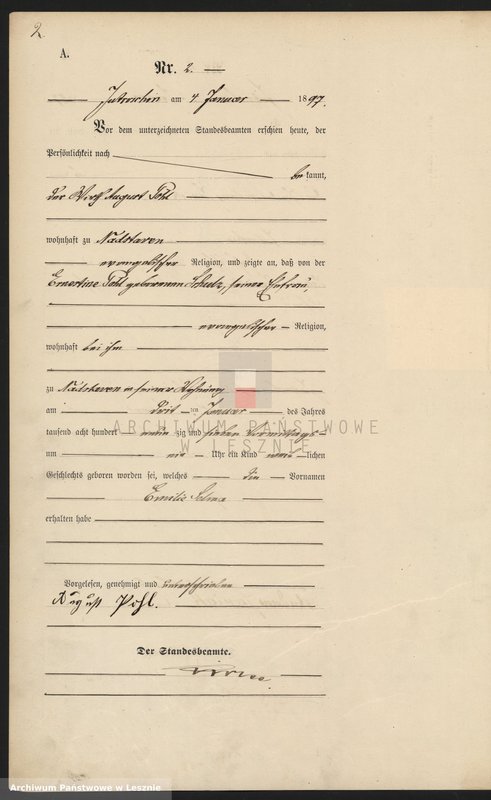 2
A.
Nr. 2.
Jutroschin am 4 Januar 1897.
Vor dem unterzeichneten Standesbeamten erschien heute, der
Persönlichkeit nach
be kannt,
der Wirth August Pohl
wohnhaft zu
evangelischer Religion, und zeigte an, daß von der
Ernestine Pohl geborenen Schulz, seiner Ehefrau,
evangelischer Religion,
wohnhaft bei ihm
zu in seiner Wohnung
am ten Januar des Jahres
tausend acht hundert neun zig und sieben Vormittags
um Uhr ein Kind weib lichen
Geschlechts geboren worden sei, welches die Vornamen
Emilie Selma
erhalten habe
Vorgelesen, genehmigt und unterschrieben
August Pohl.
Der Standesbeamte.
ARCHIWUM PAŃSTWOWE
W LESZNIE
Archiwum Państwowe w Lesznie